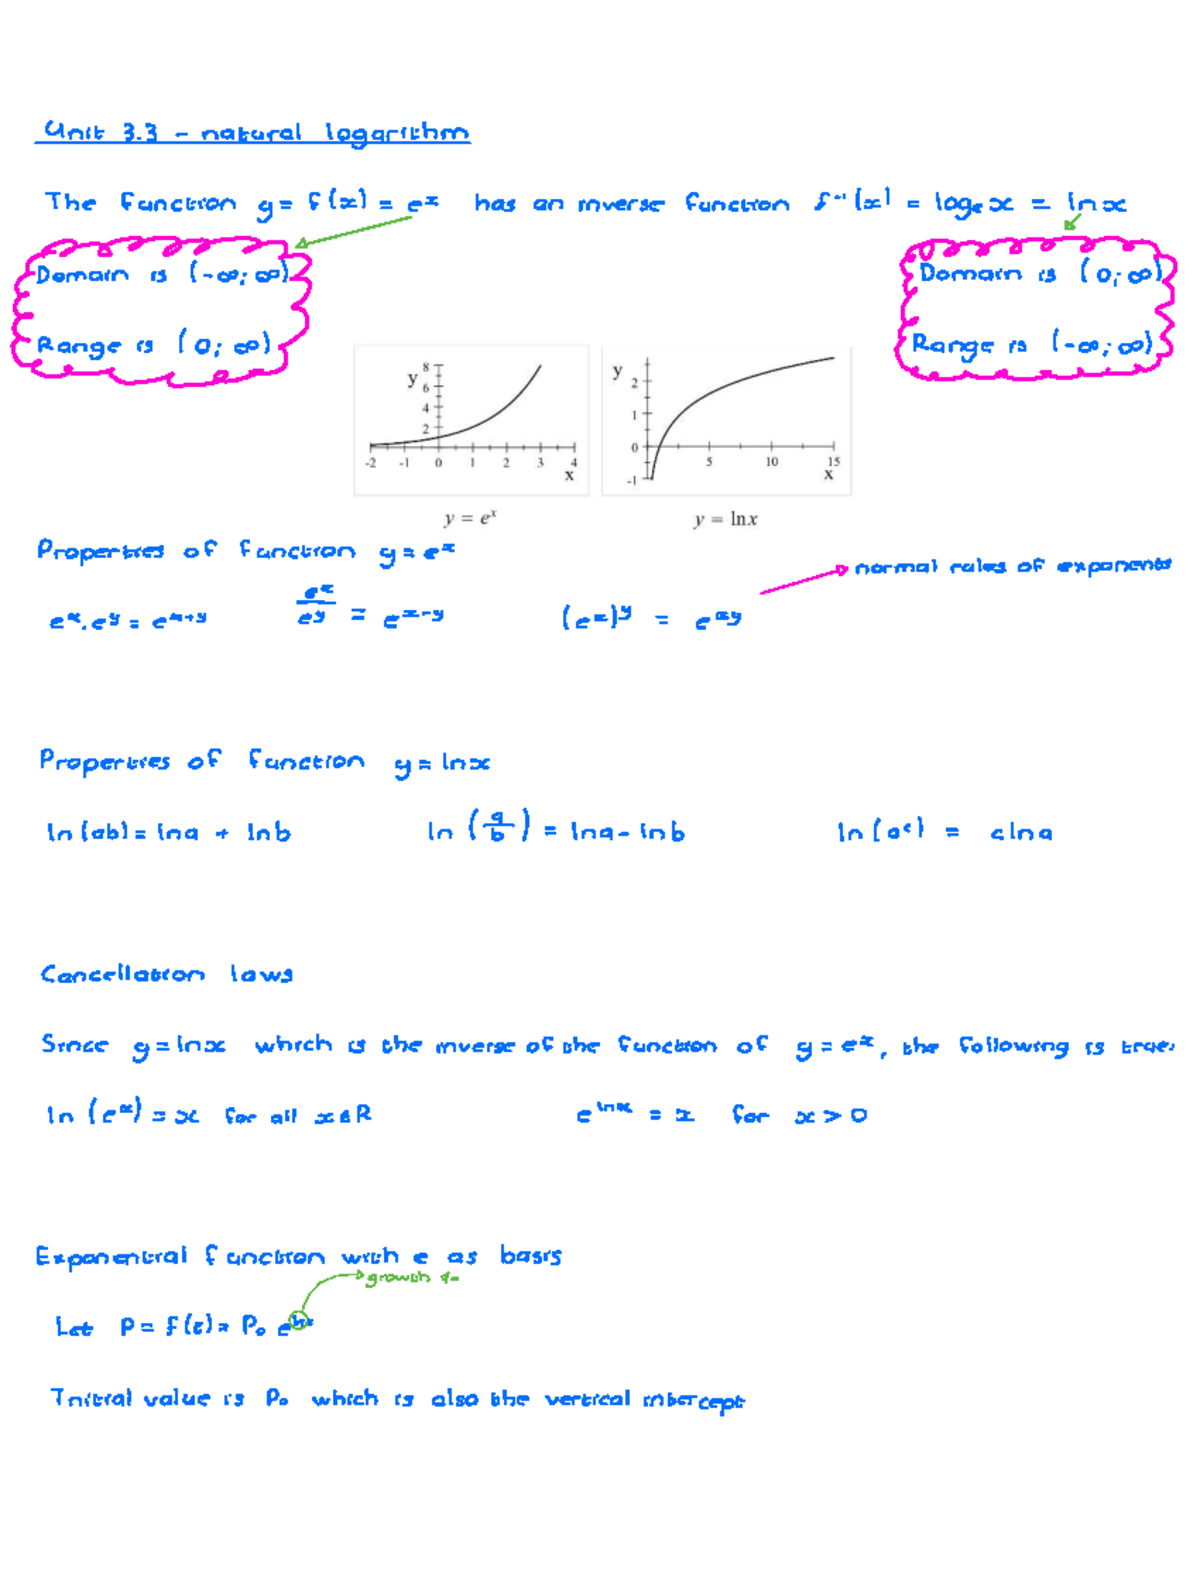 Unit 3.3 - natural logarithm
The function y = f(x) = eˣ has an inverse function f⁻¹(x) = logₑx = lnx
Domain is (-∞; ∞)
Range is (0; ∞)
Domain is (0; ∞)
Range is (-∞; ∞)
y 8 6 4 2
-2 -1 0 1 2 3 4
x
y = eˣ
y 2 1 0 -1
5 10 15
x
y = lnx
Properties of function y = eˣ
normal rules of exponents
eˣ.eʸ = eˣ⁺ʸ eˣ/eʸ = eˣ⁻ʸ (eˣ)ʸ = eˣʸ
Properties of function y = lnx
ln(ab) = lna + lnb ln(a/b) = lna - lnb ln(aᶜ) = clna
Cancellation laws
Since y = lnx which is the inverse of the function of y = eˣ, the following is true:
ln(eˣ) = x for all x∈R e^lnx = x for x > 0
Exponential function with e as basis
growth
Let P = f(t) = P₀ e
Initial value is P₀ which is also the vertical intercept